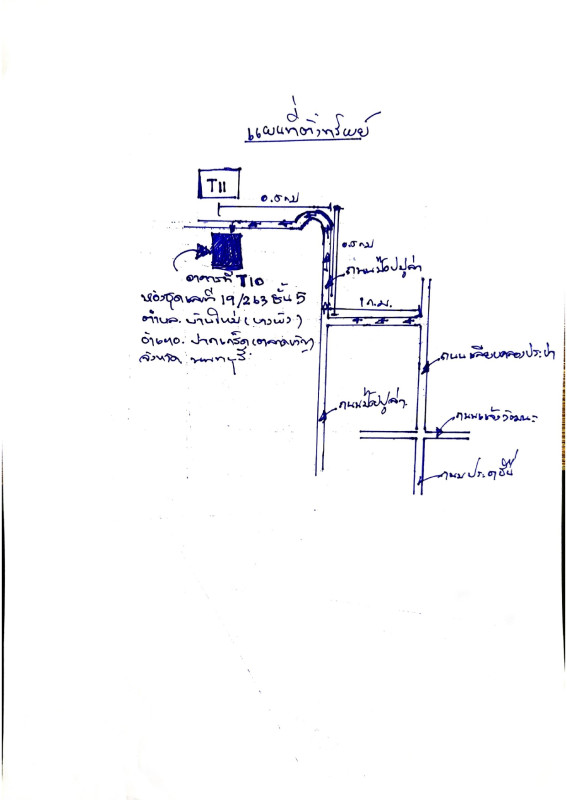 แผนที่ตั้งทรัพย์
T11
0.5 กม
0.5 กม
ถนนป๊อปปูล่า
1 ก.ม.
อาคารที่ T10
ห้องชุดเลขที่ 19/263 ชั้น 5
ตำบล. บ้านใหม่ (บางพัง)
อำเภอ. ปากเกร็ด (ตลาดขวัญ)
จังหวัด นนทบุรี
ถนนเลียบคลองประปา
ถนนป๊อปปูล่า
ถนนแจ้งวัฒนะ
ถนนประชาชื่น